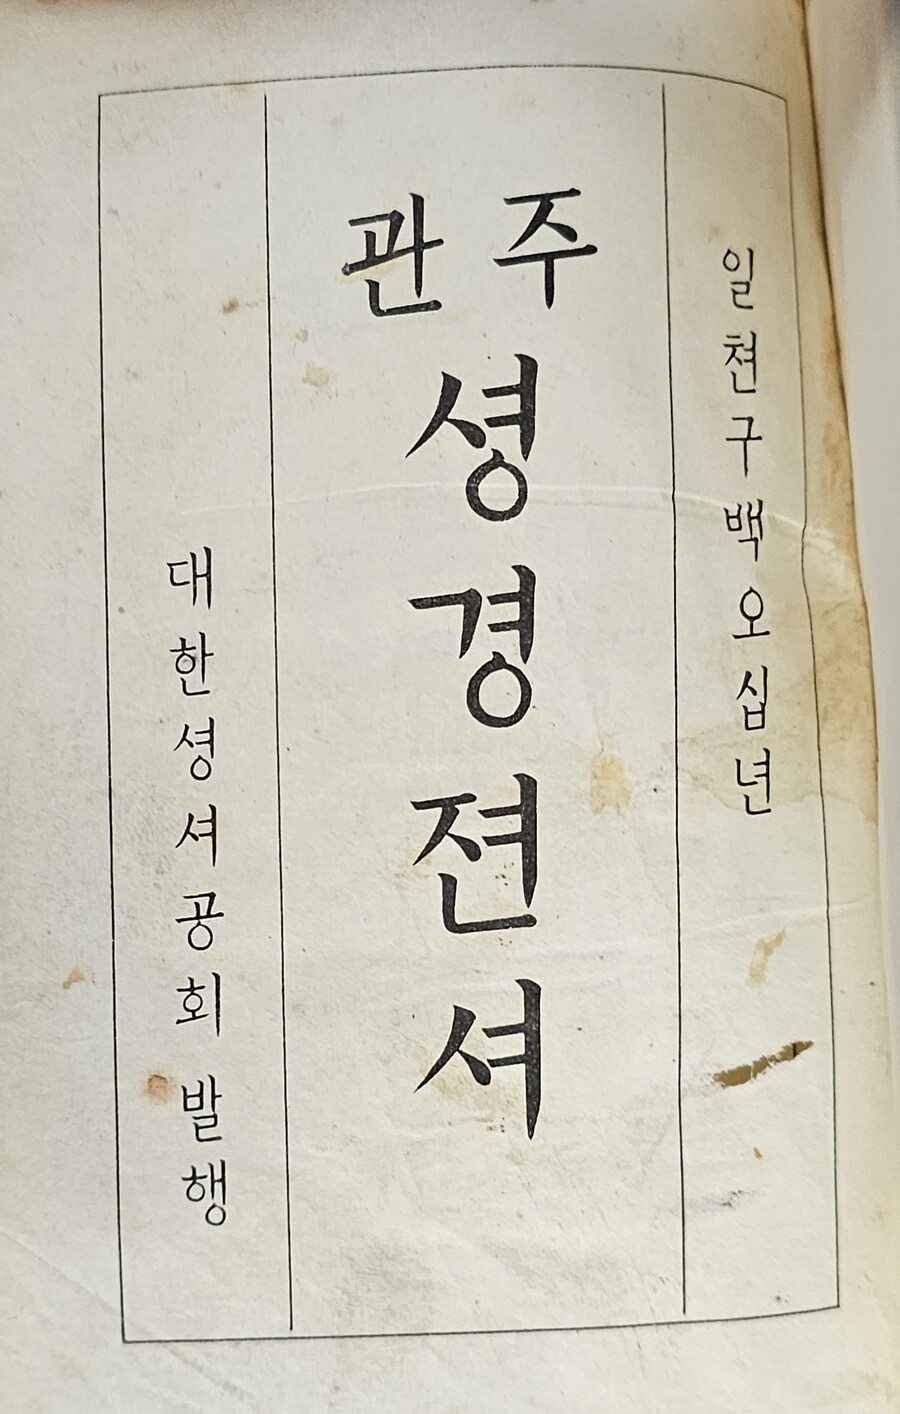 일쳔구백오십년
관주
셩경젼셔
대한셩셔공회 발행